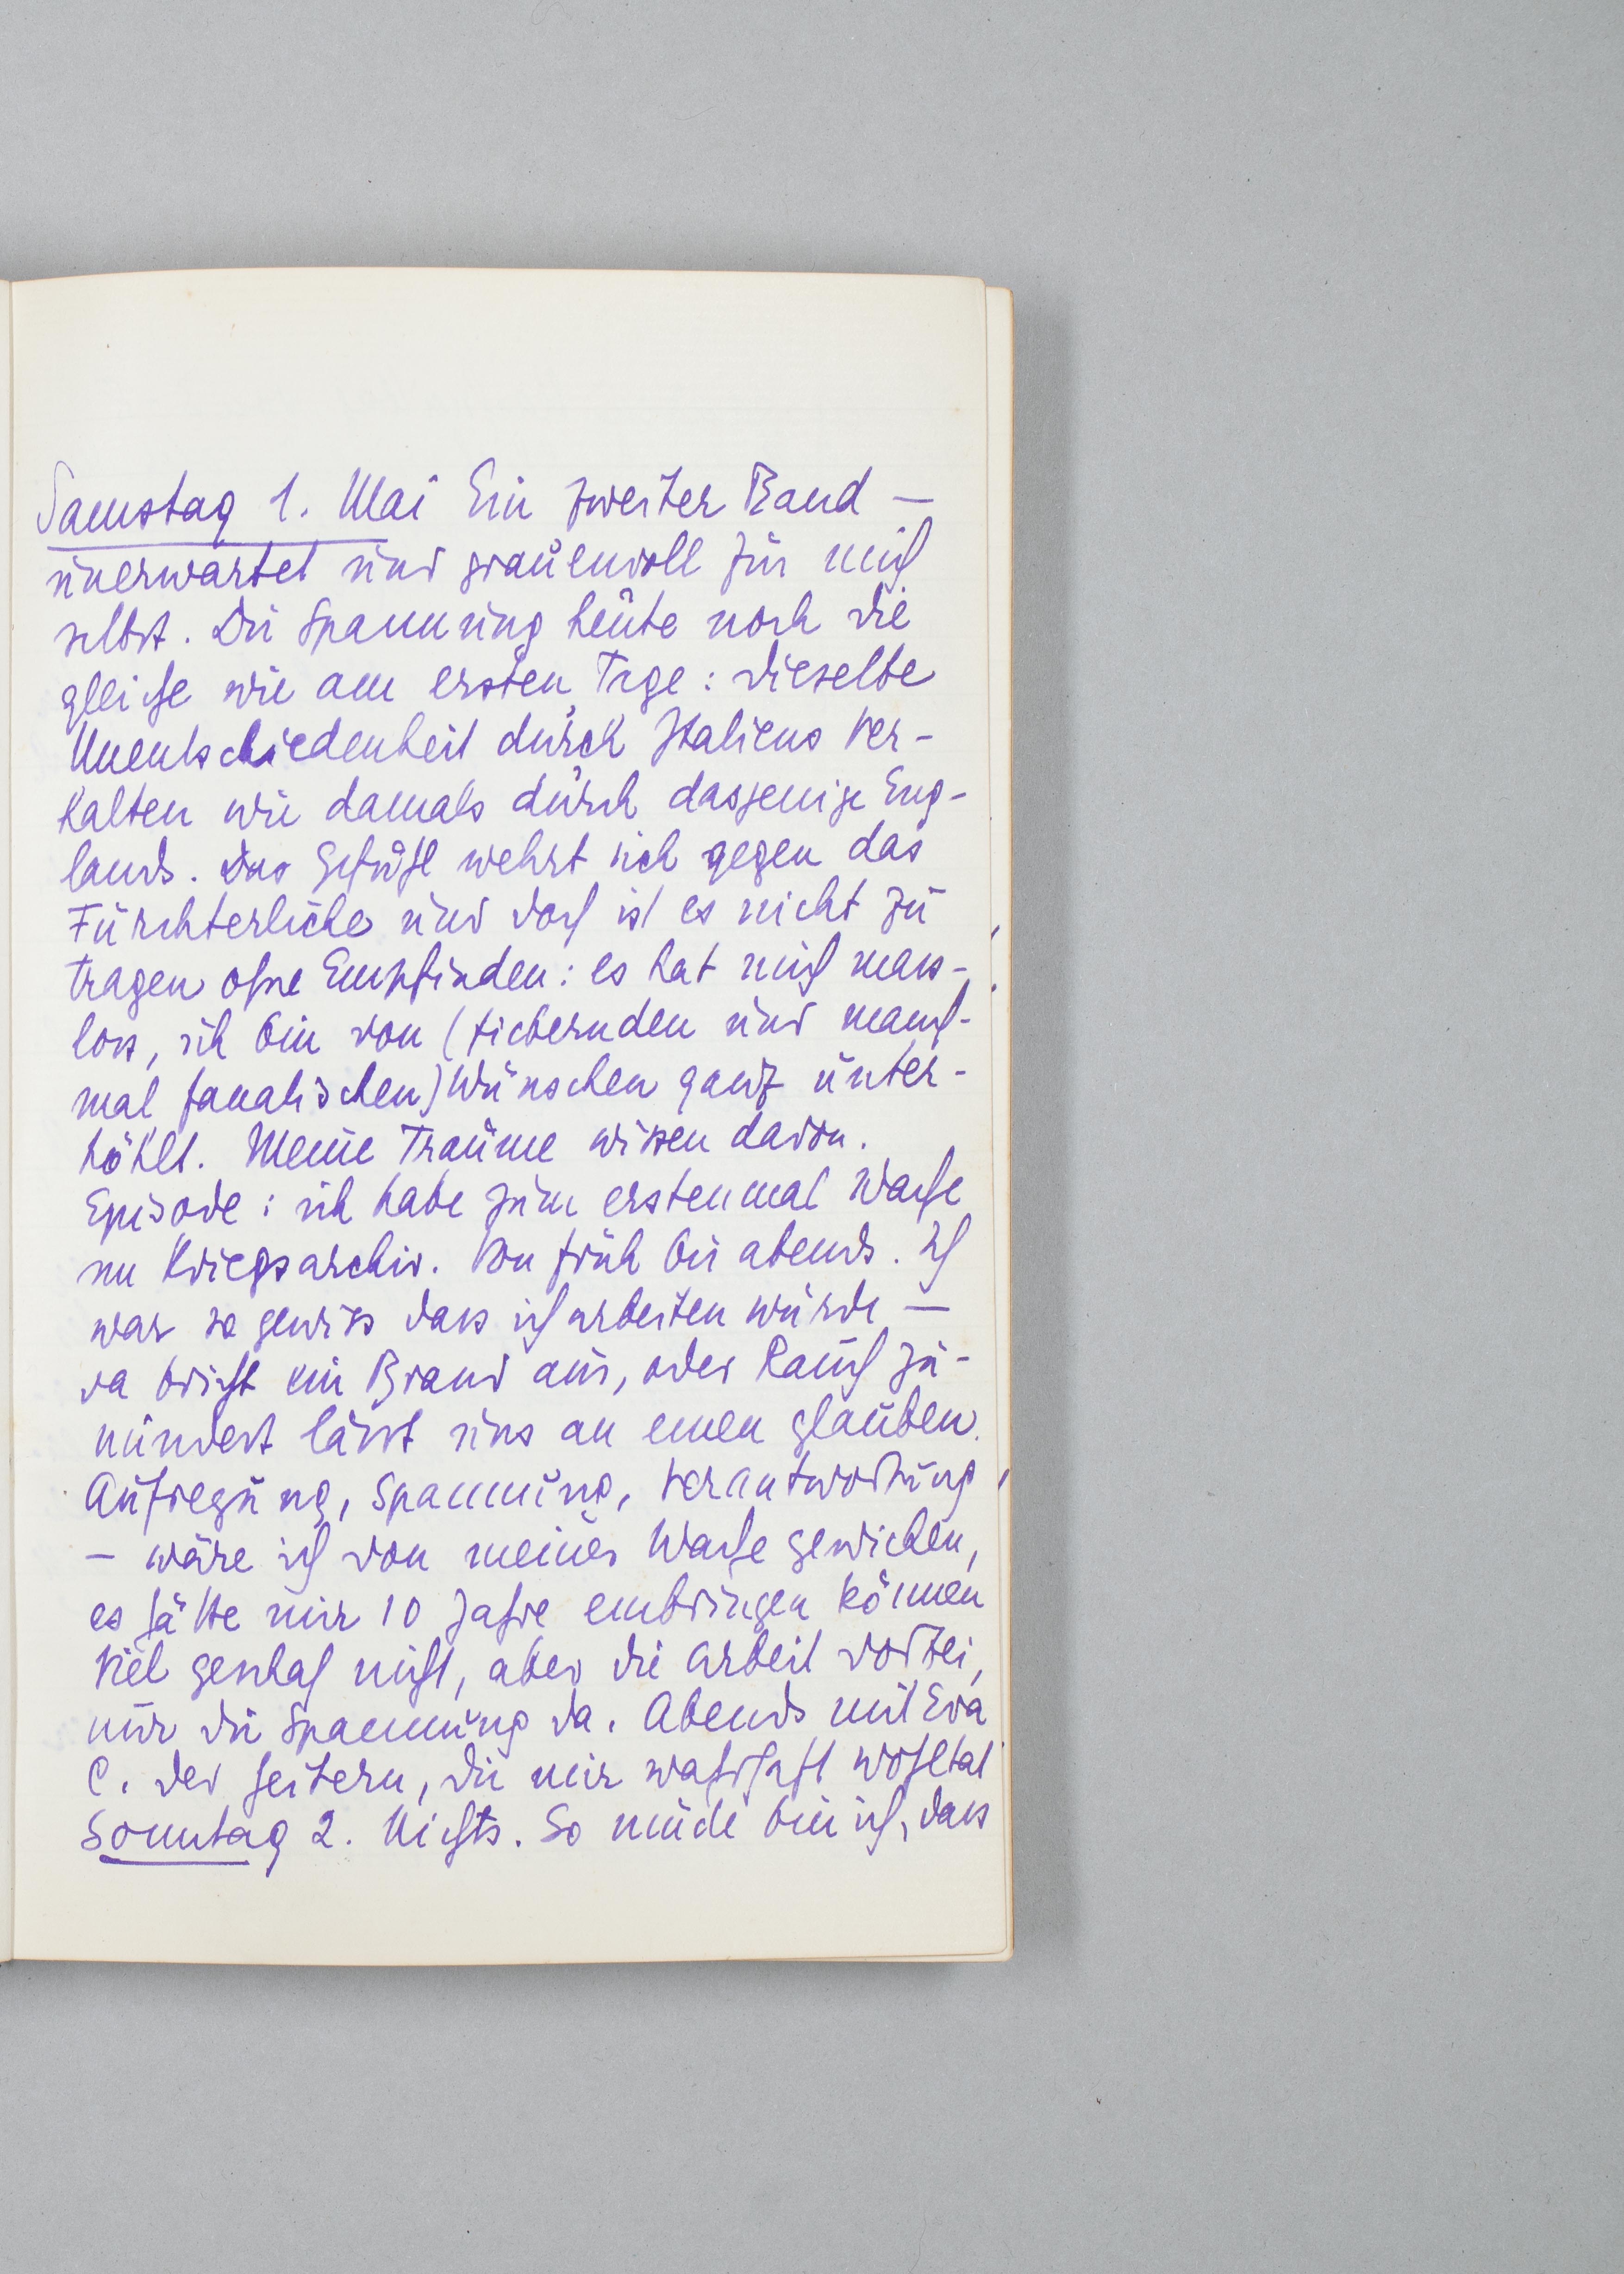 Samstag 1. Mai Ein zweiter Band –
unerwartet und grauenvoll für mich
selbst. Die Spannung heute noch die
gleiche wie am ersten Tage: dieselbe
Unentschiedenheit durch Italiens Ver-
halten wie damals durch dasjenige Eng-
lands. Das Gefühl wehrt sich gegen das
Fürchterliche und doch ist es nicht zu
tragen ohne Empfinden: es hat mich mass-
los, ich bin von (fiebernden und manch-
mal fanatischen) Wünschen ganz unter-
höhlt. Meine Träume wissen davon.
Episode: ich habe zum erstenmal Wache
im Kriegsarchiv. Von früh bis abends. Ich
war so gewiss dass ich arbeiten würde –
da bricht ein Brand aus, oder Rauch zu-
mindest lässt uns an einen glauben.
Aufregung, Spannung, Verantwortung
– wäre ich von meiner Wache gewichen,
es hätte mir 10 Jahre einbringen können
Viel geschah nicht, aber die Arbeit vorbei,
nur die Spannung da. Abends mit Eva
C. der heitern, die mir wahrhaft wohltat
Sonntag 2. Nichts. So müde bin ich, dass